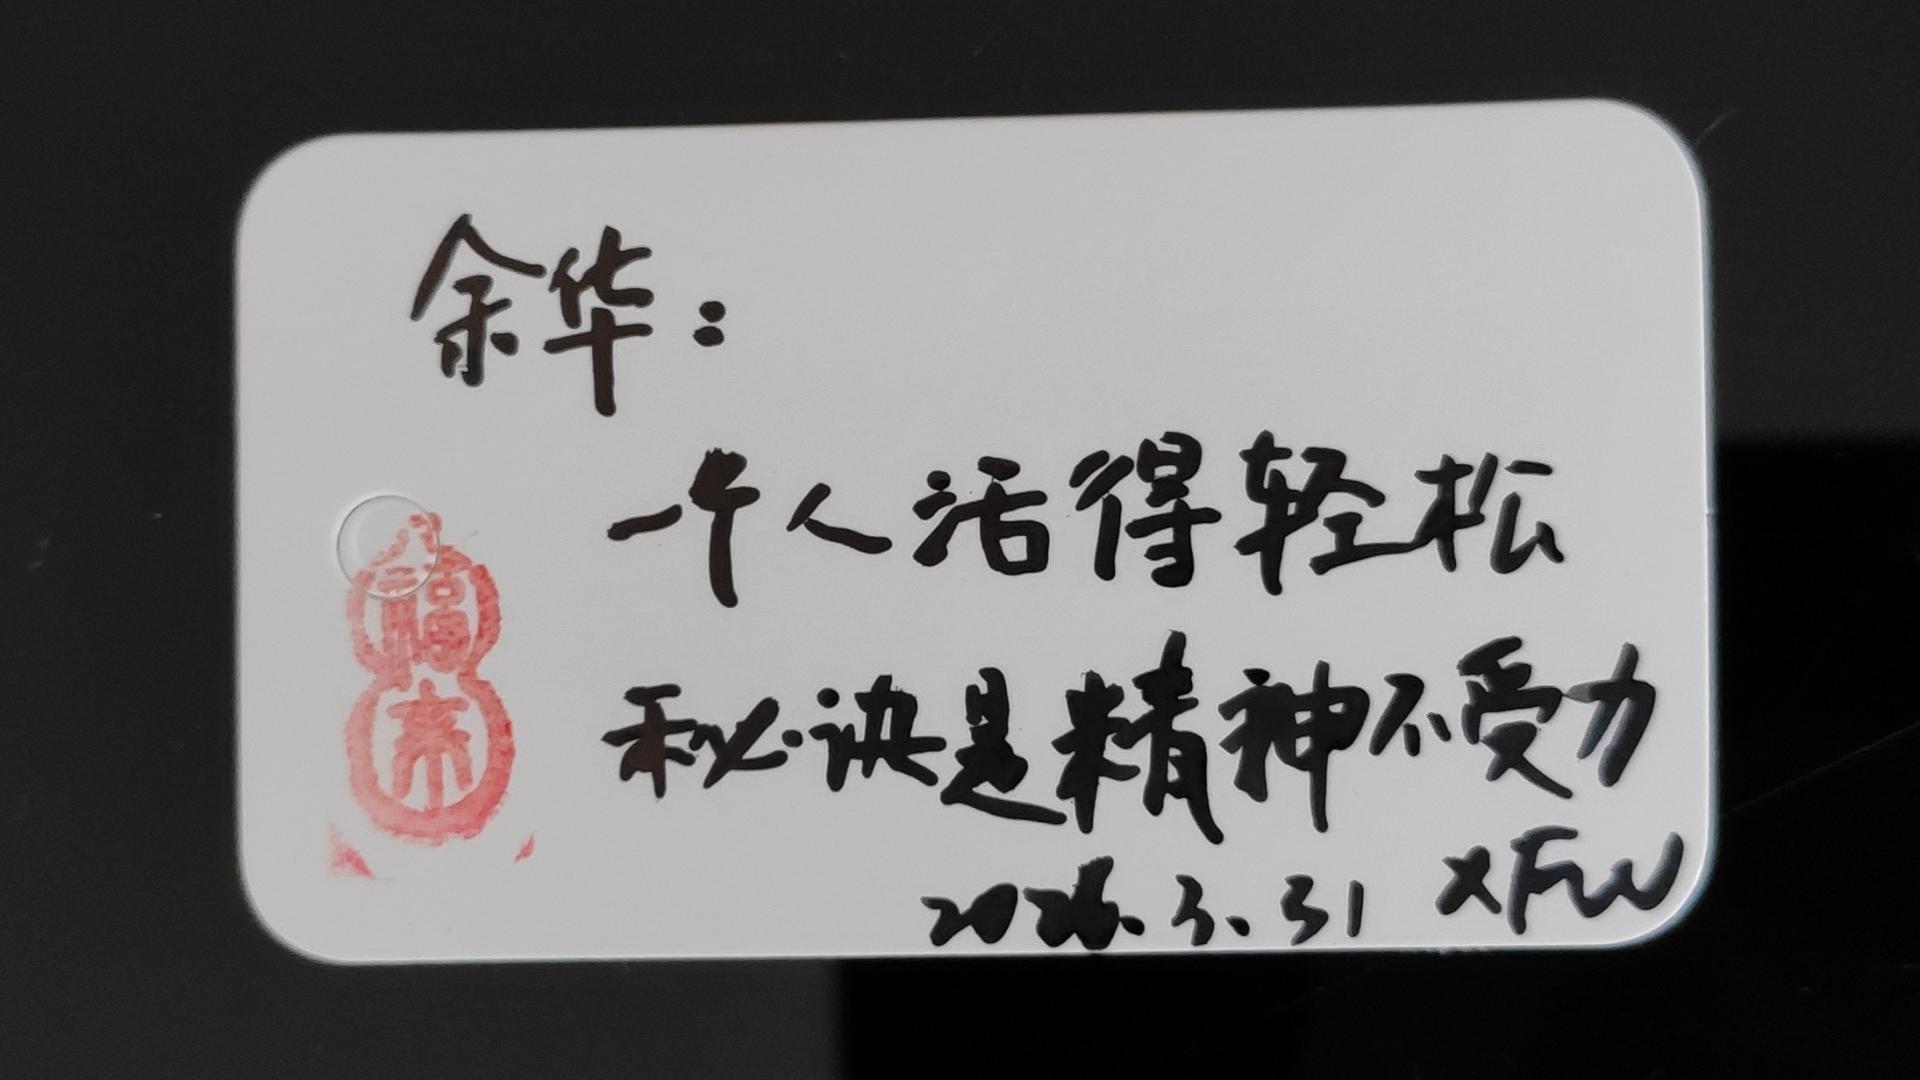 余华：
一个人活得轻松
秘诀是精神不受力
2026.3.31 XFW
福